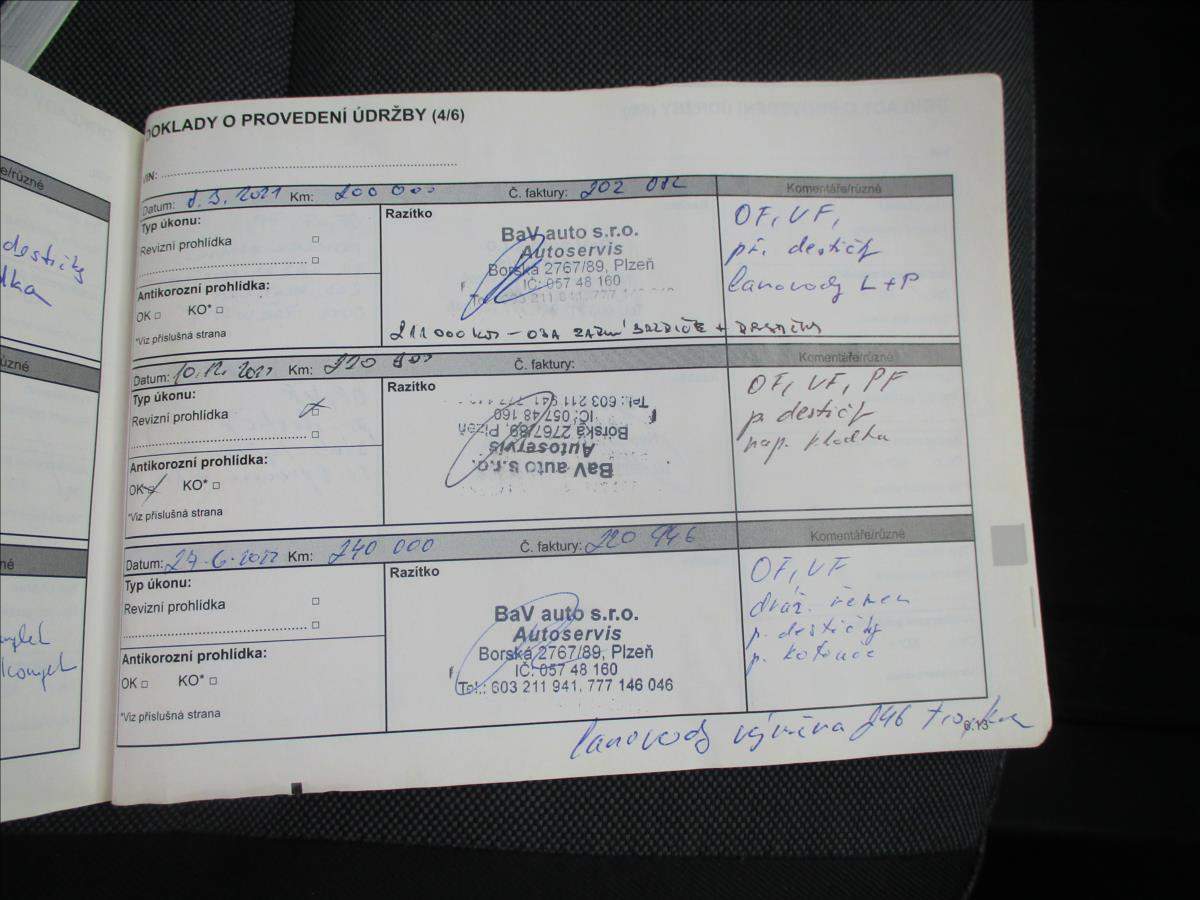 e/různé
destičky
dka
ůzné
né
komplet
DOKLADY O PROVEDENÍ ÚDRŽBY (4/6)
VIN:
Datum: 8.3.2021 Km: 200 000 Č. faktury: 202 082 Komentáře/různé
Typ úkonu:
Revizní prohlídka
Antikorozní prohlídka:
OK KO*
*Viz příslušná strana
Razítko
BaV auto s.r.o.
Autoservis
Borská 2767/89, Plzeň
IČ: 057 48 160
Tel.: 603 211 941, 777 146 046
211 000 km - OBA ZADNÍ BRZDIČE + DESTIČKY
OF, VF,
př. destičk
lanovody L+P
Datum: 10.12.2021 Km: 220 000 Č. faktury: Komentáře/různé
Typ úkonu:
Revizní prohlídka
Antikorozní prohlídka:
OK KO*
*Viz příslušná strana
Razítko
BaV auto s.r.o.
Autoservis
Borská 2767/89, Plzeň
IČ: 057 48 160
Tel.: 603 211 941, 777
OF, VF, PF
p. destičk
nap. kladka
Datum: 27.6.2022 Km: 240 000 Č. faktury: 220 946 Komentáře/různé
Typ úkonu:
Revizní prohlídka
Antikorozní prohlídka:
OK KO*
*Viz příslušná strana
Razítko
BaV auto s.r.o.
Autoservis
Borská 2767/89, Plzeň
IČ: 057 48 160
Tel.: 603 211 941, 777 146 046
OF, VF
dráž. řemen
p. destičky
p. kotouče
lanovody výměna 246
6.13